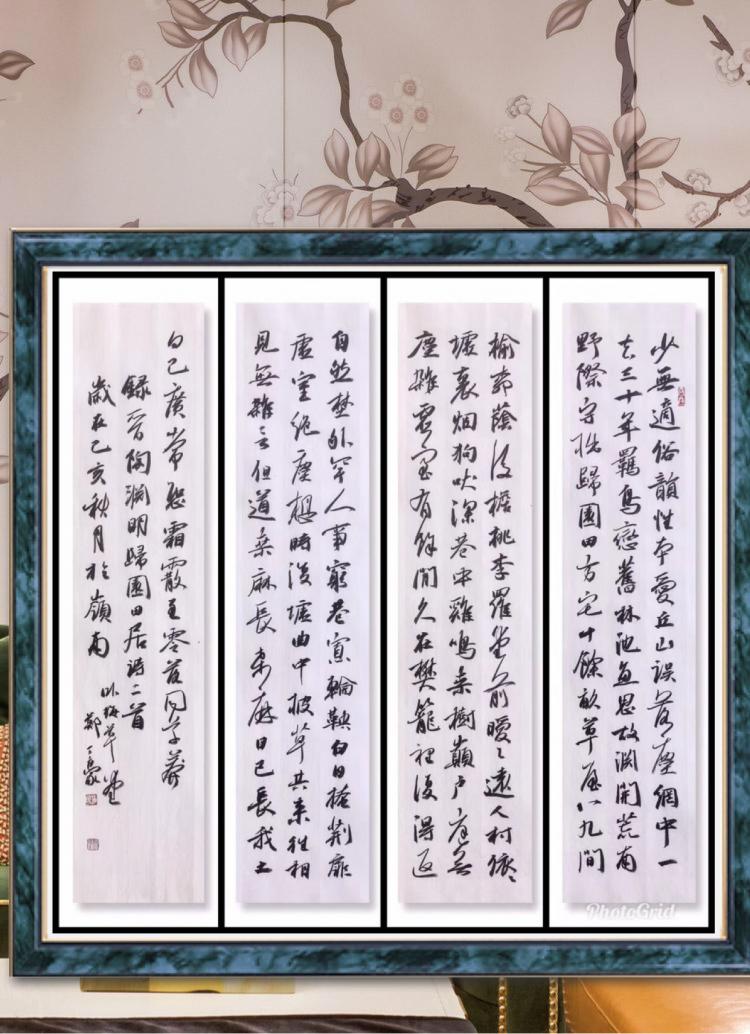 少無適俗韻性本愛丘山誤落塵網中一
去三十年羈鳥戀舊林池魚思故淵開荒南
野際守拙歸園田方宅十餘畝草屋八九間
榆柳蔭後檐桃李羅堂前曖〻遠人村依〻
墟裏烟狗吠深巷中雞鳴桑樹巔户庭無
塵雜虛室有餘閒久在樊籠裡復得返
自然埜外罕人事窮巷寡輪鞅白日掩荊扉
虛室絕塵想時復墟曲中披草共來往相
見無雜言但道桑麻長桑麻日已長我土
日已廣常恐霜霰至零落同草莽
録晉陶淵明歸園田居詩二首
歲在己亥秋月於嶺南
草堂
鄭
PhotoGrid